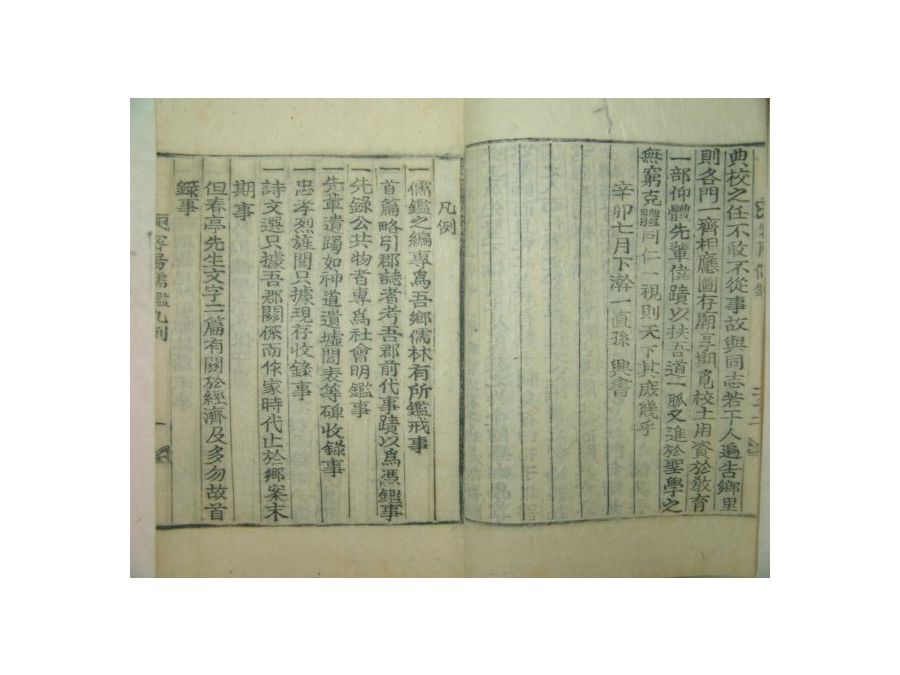 典校之任不敢不從事故與同志若干人遍告鄉里
則各門一齊相應圖存廟享期覓校土用資於敎育
一部仰體先輩偉蹟以扶吾道一脈又進於聖學之
無窮克體同仁一視則天下其庶幾乎
辛卯七月下澣一直孫 興書
凡例
一儒鑑之編專爲吾鄉儒林有所鑑戒事
一首篇略引郡誌者考吾郡前代事蹟以爲憑鑑事
一先錄公共物者專爲社會明鑑事
一先輩遺躅如神道遺墟閭表等碑收錄事
一忠孝烈旌閭只據現存收錄事
詩文選只據吾郡關係而作家時代止於鄉案末
期事
但春亭先生文字二篇有關於經濟及多勿故首
錄事
密陽儒鑑凡例 一